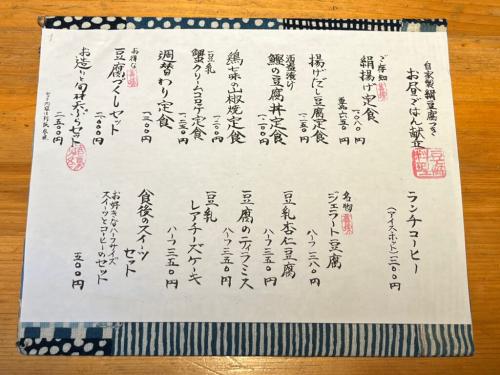 自家製絹豆腐つき
お昼ごはん献立
ご存知
絹揚げ定食
一〇八〇円
揚げだし豆腐定食
鰹の豆腐丼定食
一二〇〇円
鶏七味山椒焼定食
一二〇〇円
豆乳
蟹クリームコロッケ定食
一二五〇円
週替わり定食
一三〇〇円
お得な
豆腐づくしセット
二〇〇〇円
お造りと旬の天ぷらセット
二五〇〇円
ランチコーヒー
(アイス・ホット)二〇〇円
名物
ジェラート豆腐
ハーフ二八〇円
豆乳杏仁豆腐
ハーフ二五〇円
豆腐のティラミス
ハーフ三五〇円
豆乳
レアチーズケーキ
ハーフ三五〇円
食後のスイーツ
セット
お好きなハーフサイズ
スイーツとコーヒーのセット
五〇〇円